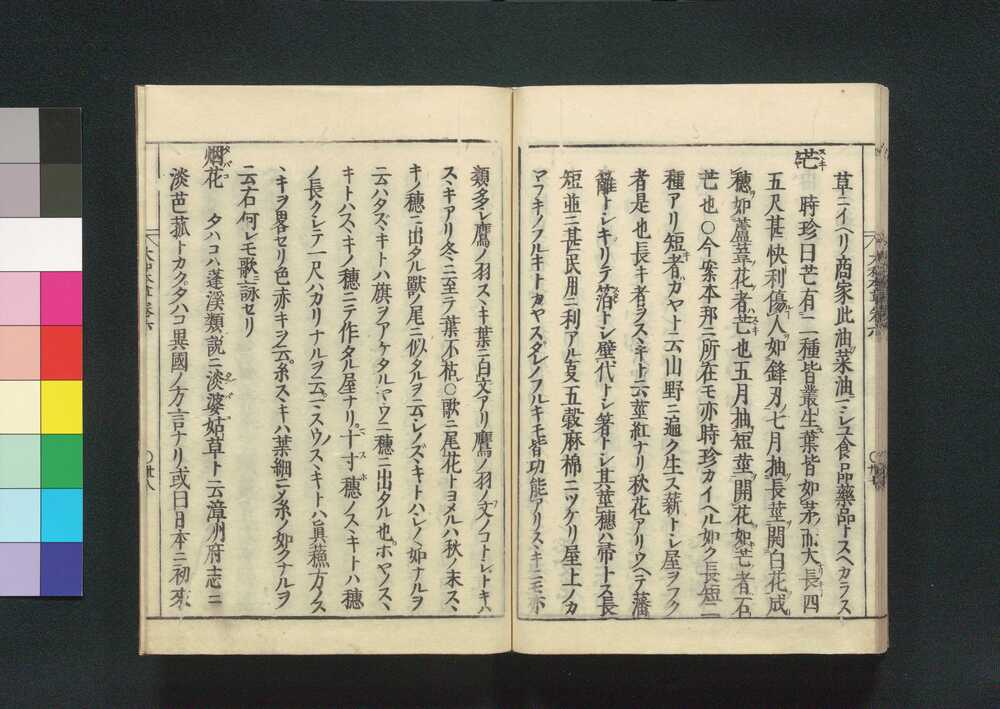 草ニイヘリ商家此油菜油ニマシユ食品藥品トスヘカラス
芒
時珍曰芒有二種皆叢生葉皆如茅而大長四
五尺甚快利傷人如鋒刃七月抽長莖開白花成
穗如蘆葦花者芒也五月抽短莖開花如芒者石
芒也〇今案本邦ニ所在モ亦時珍カイヘル如ク長短二
種アリ短者ガヤト云山野ニ遍ク生ス薪トシ屋ヲフク
者是也長キ者ヲスヽキト云莖紅ナリ秋花アリウヘテ藩
籬トシキリテ箔トシ壁代トシ箸トシ其莖穗ハ帚トス長
短並ニ甚民用ニ利アル叓五穀麻棉ニツケリ屋上ノカ
マフキノフルキトカヤスダレノフルキモ皆功能アリスヽキニモ亦
類多シ鷹ノ羽スヽキ葉ニ白文アリ鷹ノ羽ノ文ノコトシトキハ
スヽキアリ冬ニ至テ葉不枯〇歌ニ尾花トヨメルハ秋ノ末スヽ
キノ穗ニ出タル獸ノ尾ニ似タルヲ云シノズヽキトハシノノ如ナルヲ
云ハタズヽキトハ旗ヲアケタルヤウニ穗ニ出タル也ホヤノスヽ
キトハスヽキノ穗ニテ作タル屋ナリ十寸穗ノスヽキトハ穗
ノ長クシテ一尺ハカリナルヲ云マスウノスヽキトハ眞蘓方ノス
ヽキヲ畧セリ色赤キヲ云糸スヽキハ葉細ニ〆糸ノ如クナルヲ
云右何レモ歌ニ詠セリ
烟花 タハコハ蓬溪類説ニ淡婆姑草ト云漳州府志ニ
淡芭菰トカクタハコ異國ノ方言ナリ或曰日本ニ初來